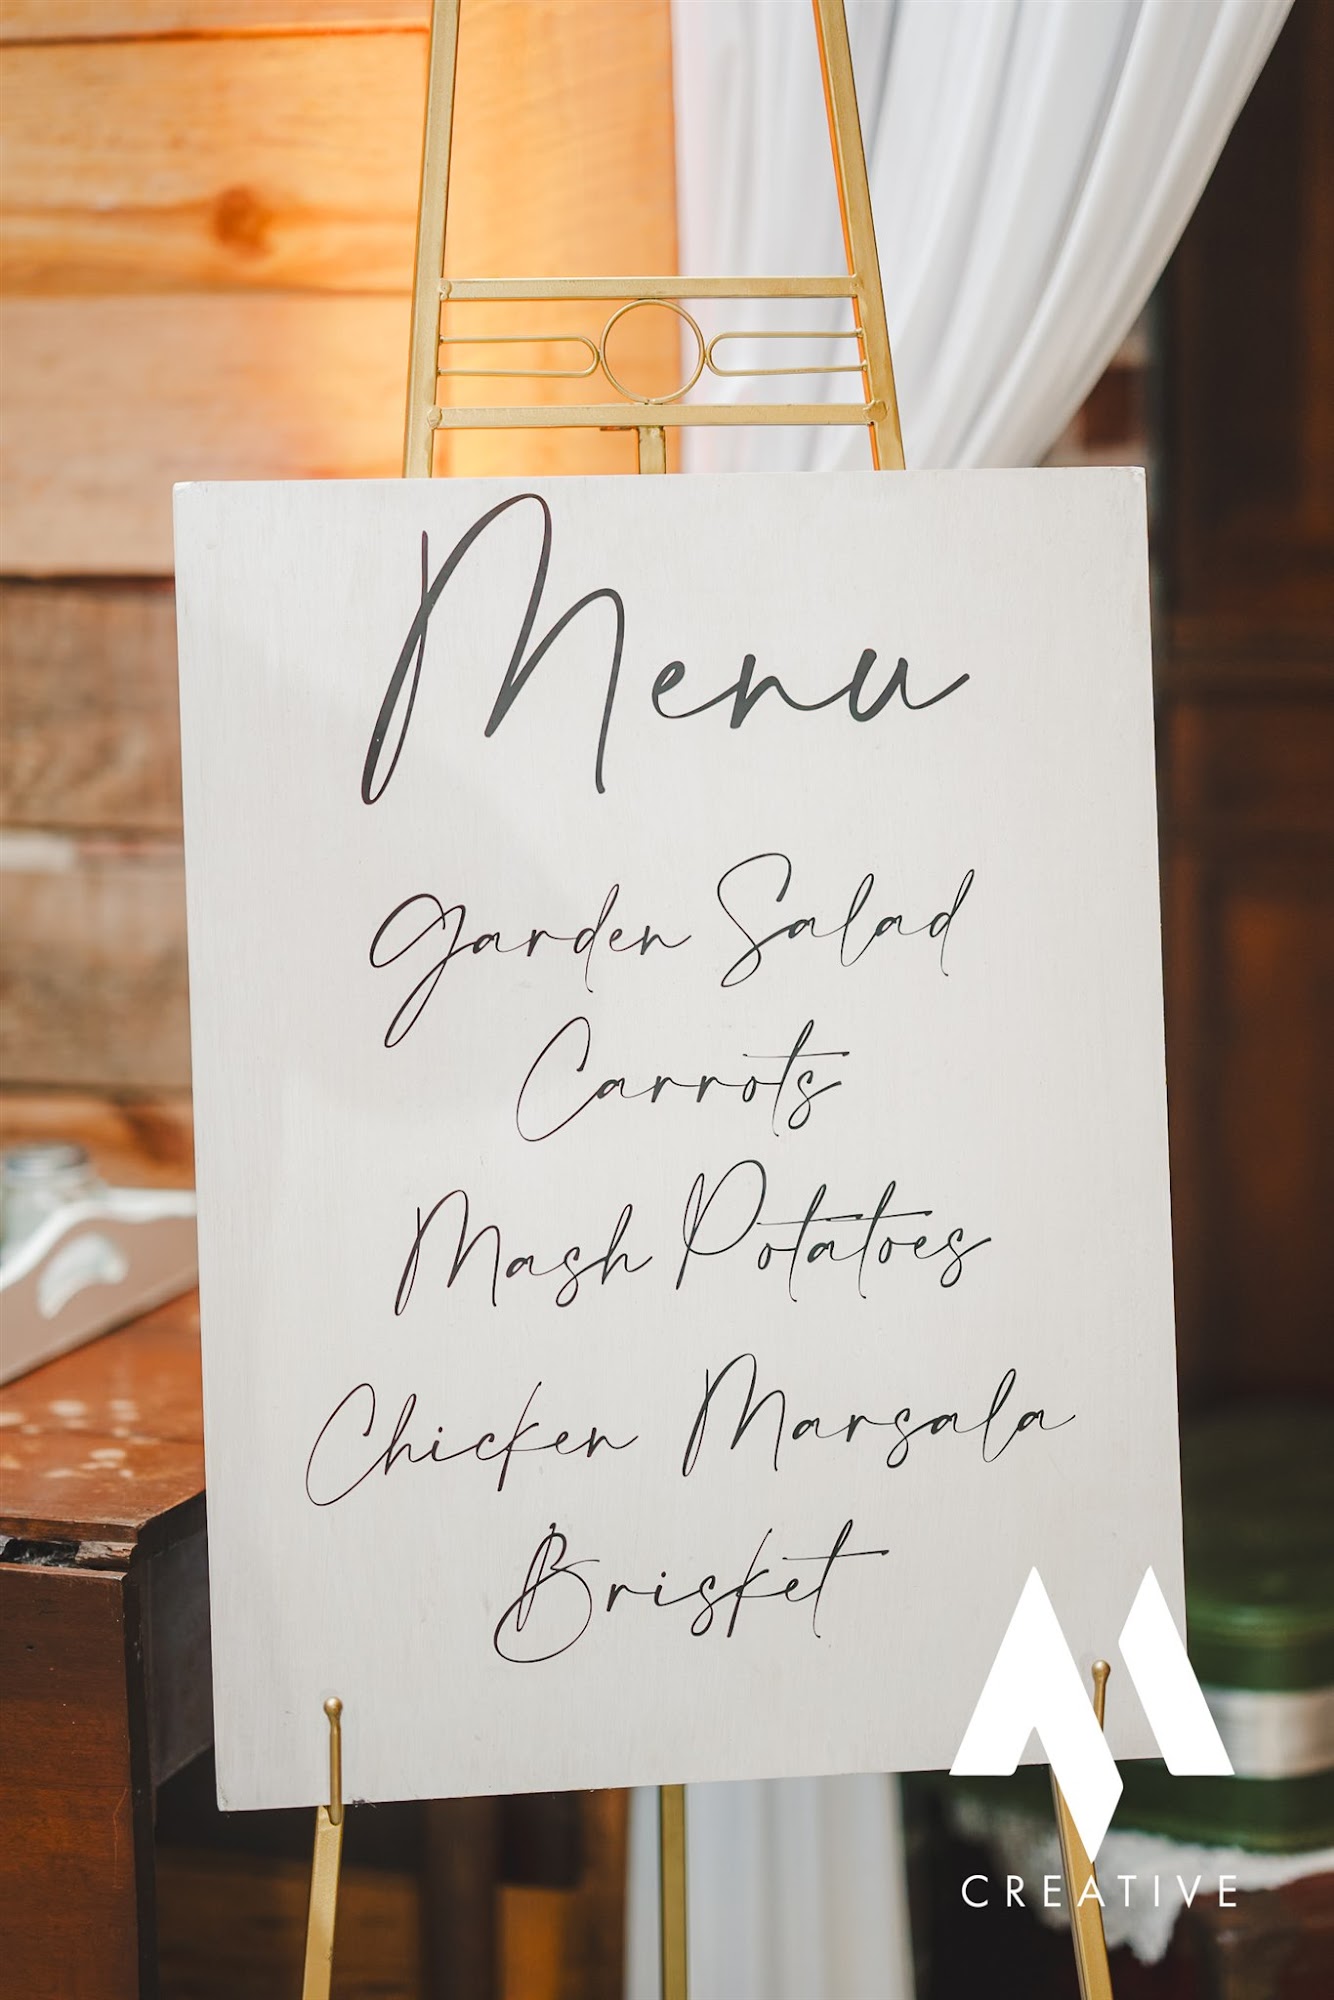 Menu
Garden Salad
Carrots
Mash Potatoes
Chicken Marsala
Brisket
CREATIVE